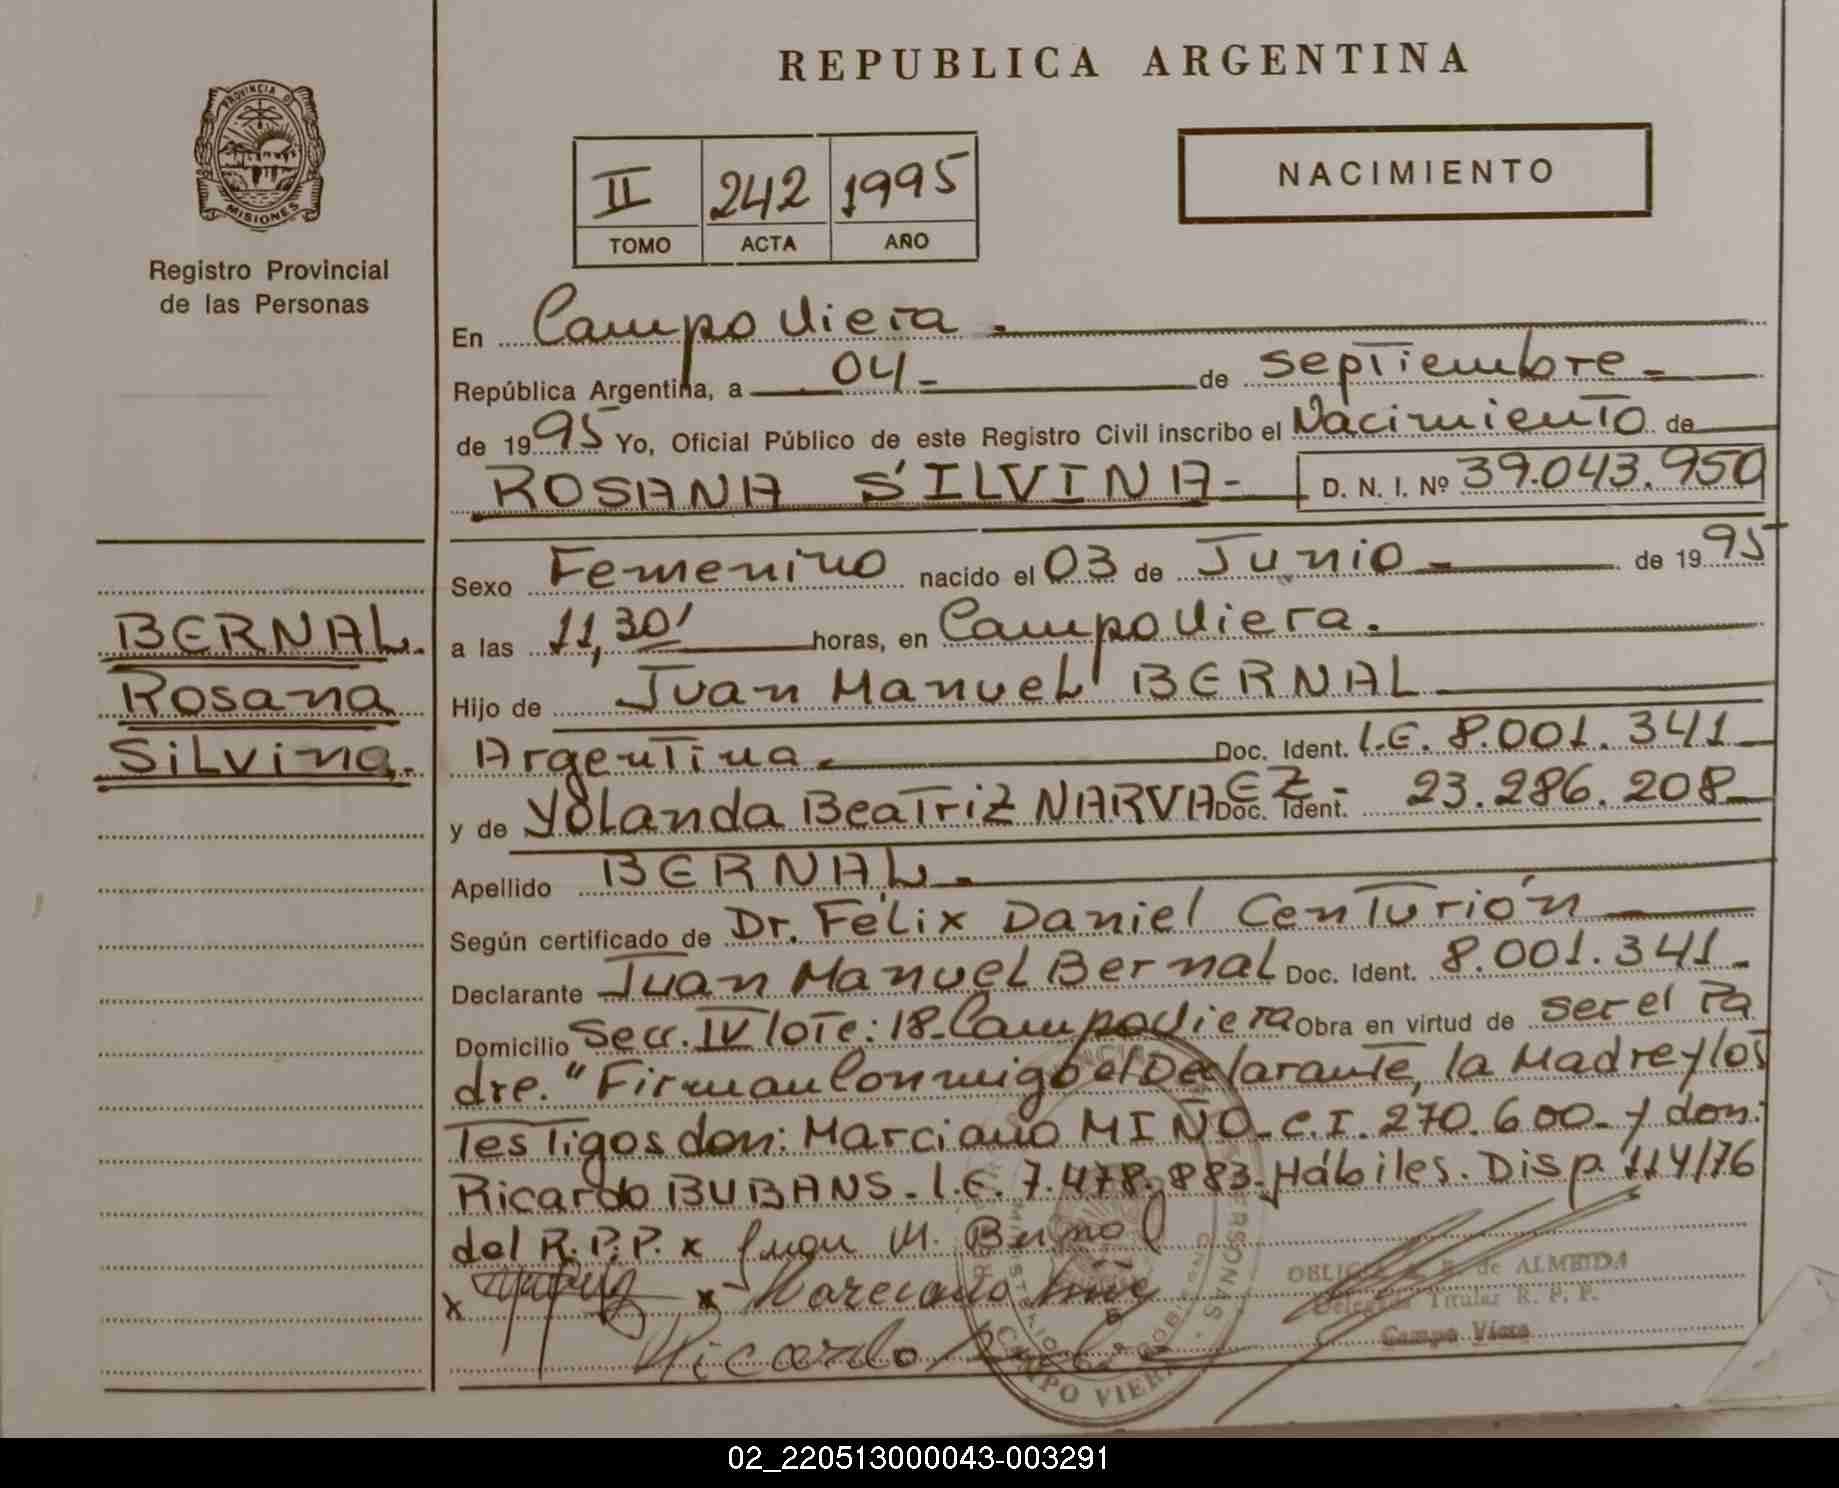 REPUBLICA ARGENTINA
PROVINCIA DE
MISIONES
Registro Provincial
de las Personas
II 242 1995
TOMO ACTA AÑO
NACIMIENTO
En Campo Viera.
República Argentina, a 04 de septiembre
de 1995 Yo, Oficial Público de este Registro Civil inscribo el Nacimiento de
ROSANA SILVINA- D. N. I. Nº 39.043.950
Sexo Femenino nacido el 03 de Junio de 1995
a las 11,30' horas, en Campo Viera.
Hijo de Juan Manuel BERNAL
Argentina Doc. Ident. L.E. 8.001.341
y de Yolanda Beatriz NARVAEZ- Doc. Ident. 23.286.208
Apellido BERNAL.
Según certificado de Dr. Félix Daniel Centurión
Declarante Juan Manuel Bernal Doc. Ident. 8.001.341
Domicilio Secc. IV lote: 18- Campo Viera Obra en virtud de ser el Pa
dre. "Firman Conmigo el Declarante, la Madre y los
Testigos don: Marciano MIÑO- C.I. 270.600- y don:
Ricardo BUBANS- L.E. 7.478.883- Hábiles. Disp. 114/76
del R.P.P. x Juan M. Bernal
x x Marciano Miño
Ricardo
BERNAL.
Rosana
Silvina.
de ALMEIDA
Delegada Titular R. P. P.
Campo Viera
CAMPO VIERA
02_220513000043-003291